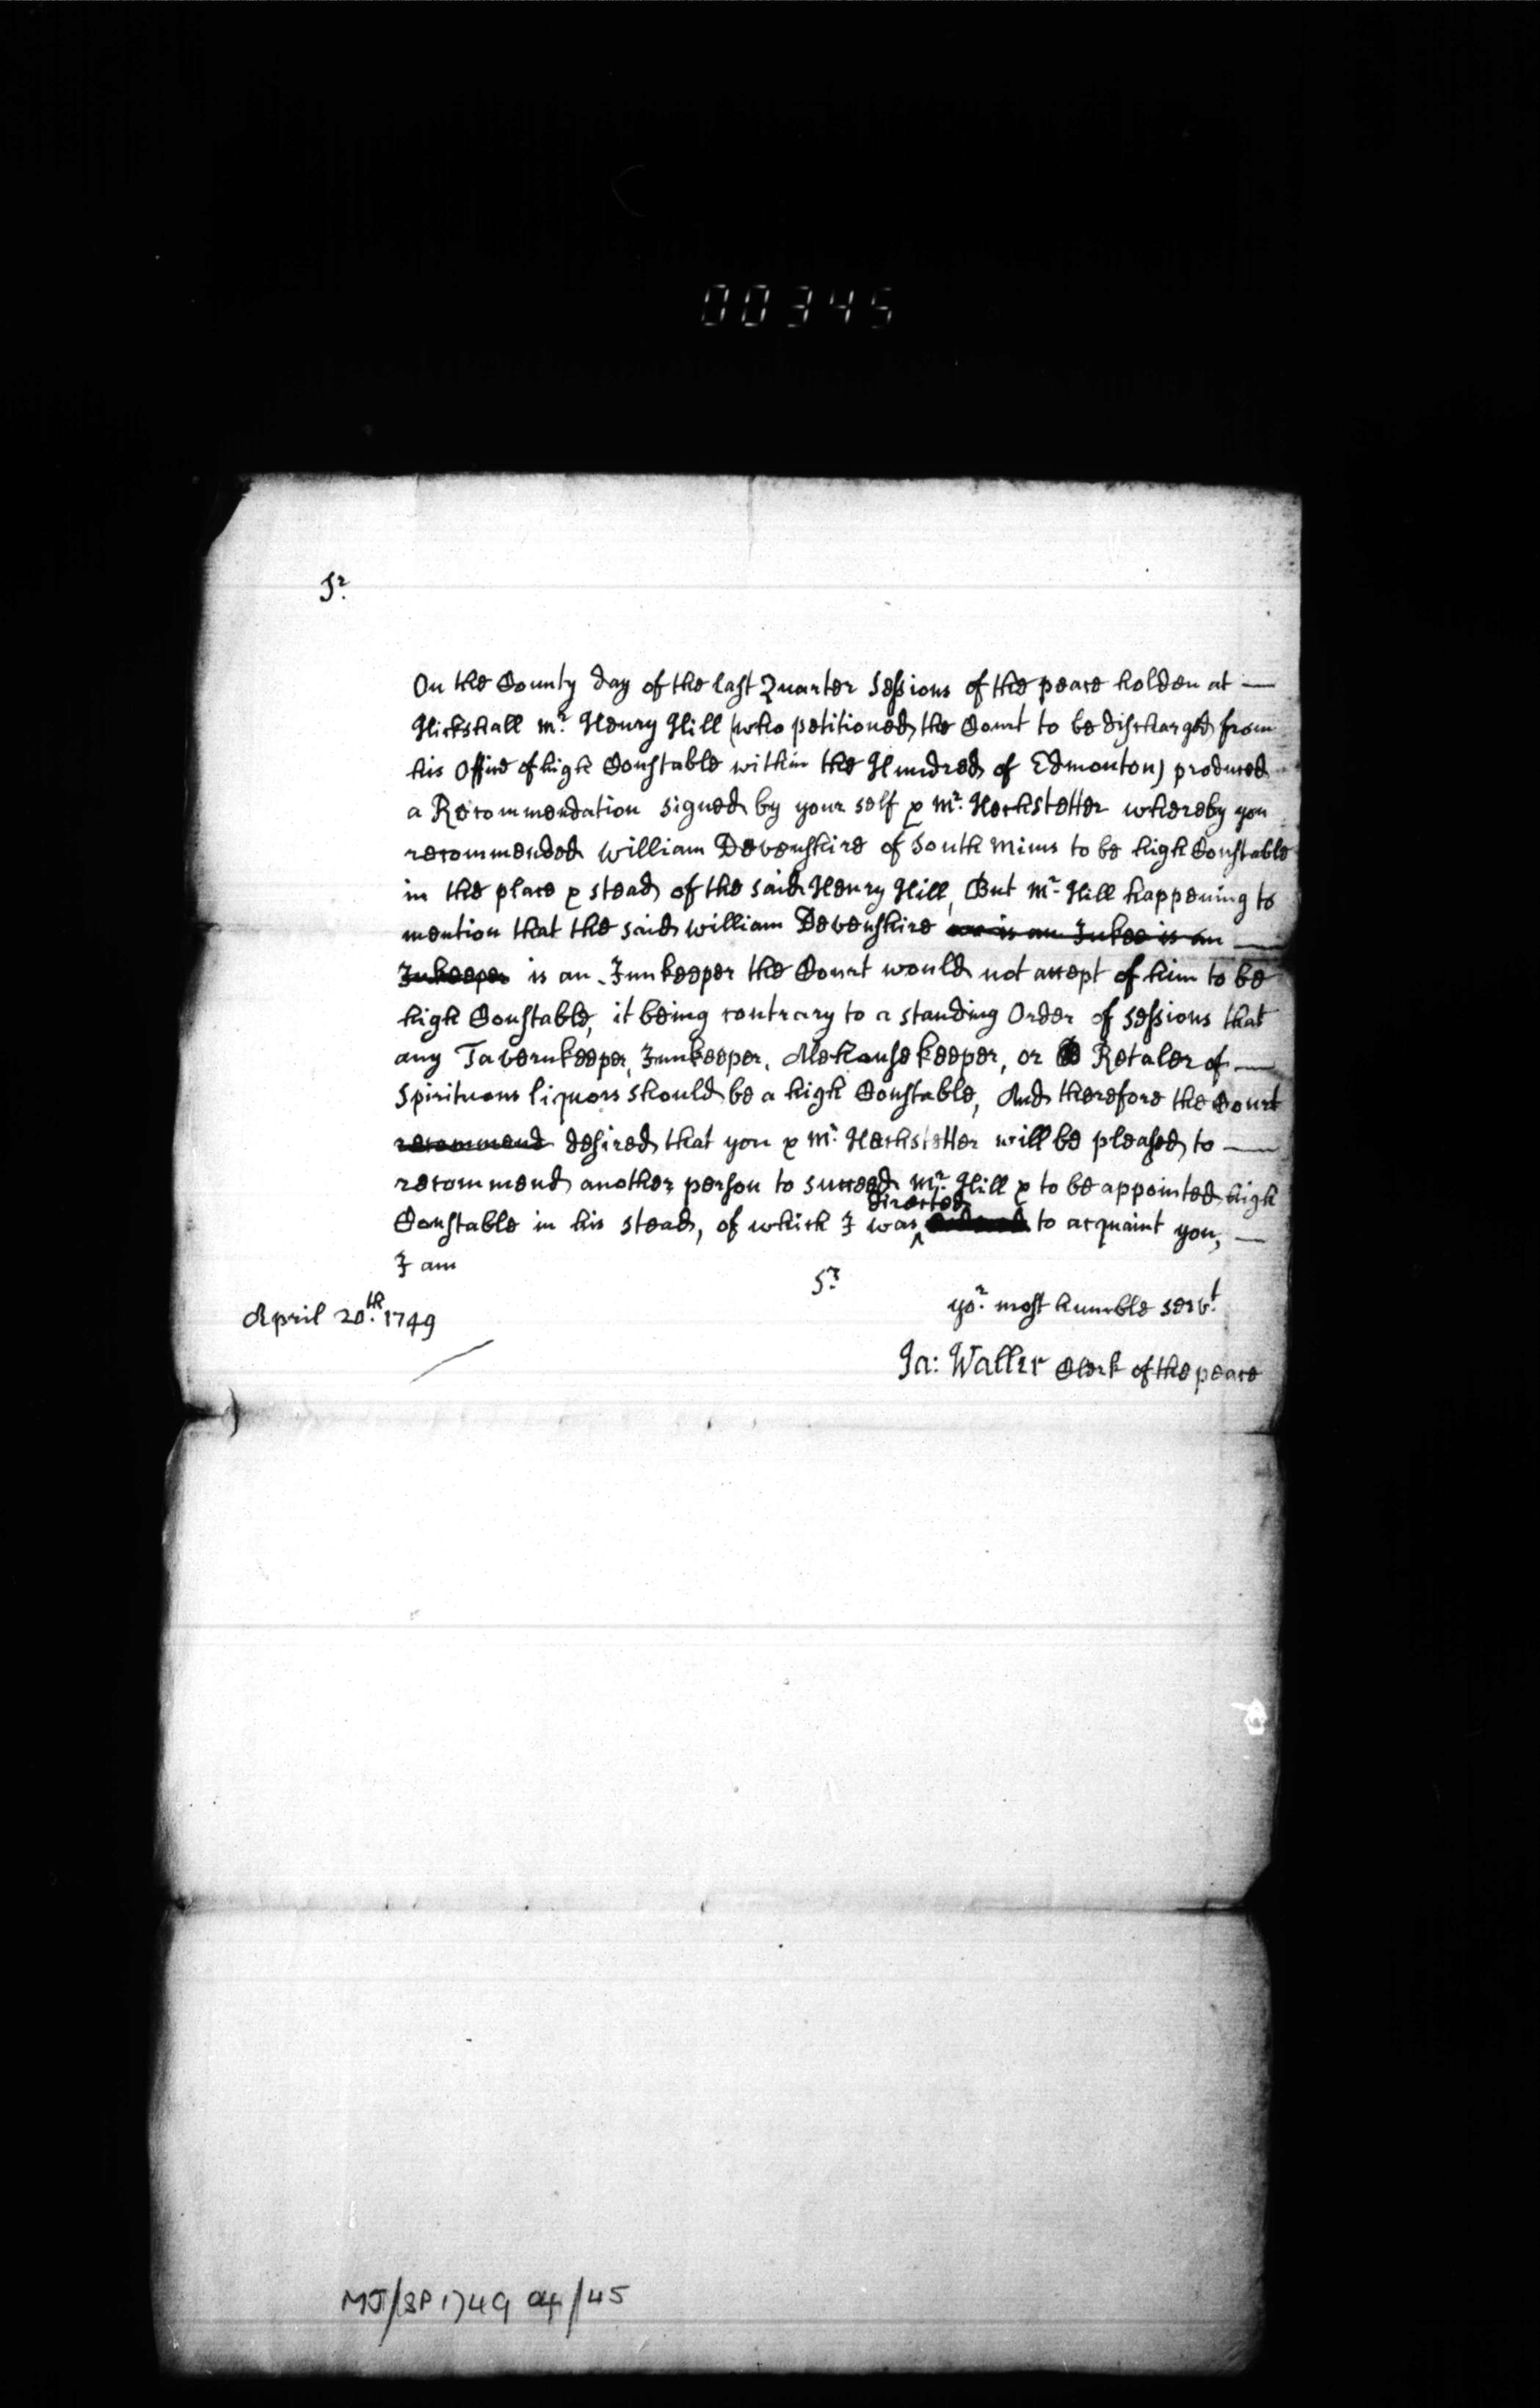 00345
Sr.
On the County day of the last Quarter Sessions of the peace holden at —
Hickshall Mr. Henry Hill (who petitioned the Court to be discharged from
his Office of high Constable within the Hundred of Edmonton) produced
a Recommendation signed by your self & Mr. Hechstetter whereby you
recommended William Devenshire of South Mims to be high Constable
in the place & stead of the said Henry Hill, But Mr. Hill happening to
mention that the said William Devenshire is an Inkee is an —
Inkeeper is an Innkeeper the Court would not accept of him to be
high Constable, it being contrary to a standing Order of Sessions that
any Tavernkeeper, Innkeeper, Alehousekeeper, or Retaler of —
Spirituous liquors should be a high Constable, And therefore the Court
recommend desired that you & Mr. Hechstetter will be pleased to —
recommend another person to succeed Mr. Hill & to be appointed high
directed
Constable in his stead, of which I was ^ to acquaint you, —
I am
Sr.
yor. most humble servt.
April 20th. 1749
Ja: Waller Clerk of the peace
MJ/SP 1749 04/45